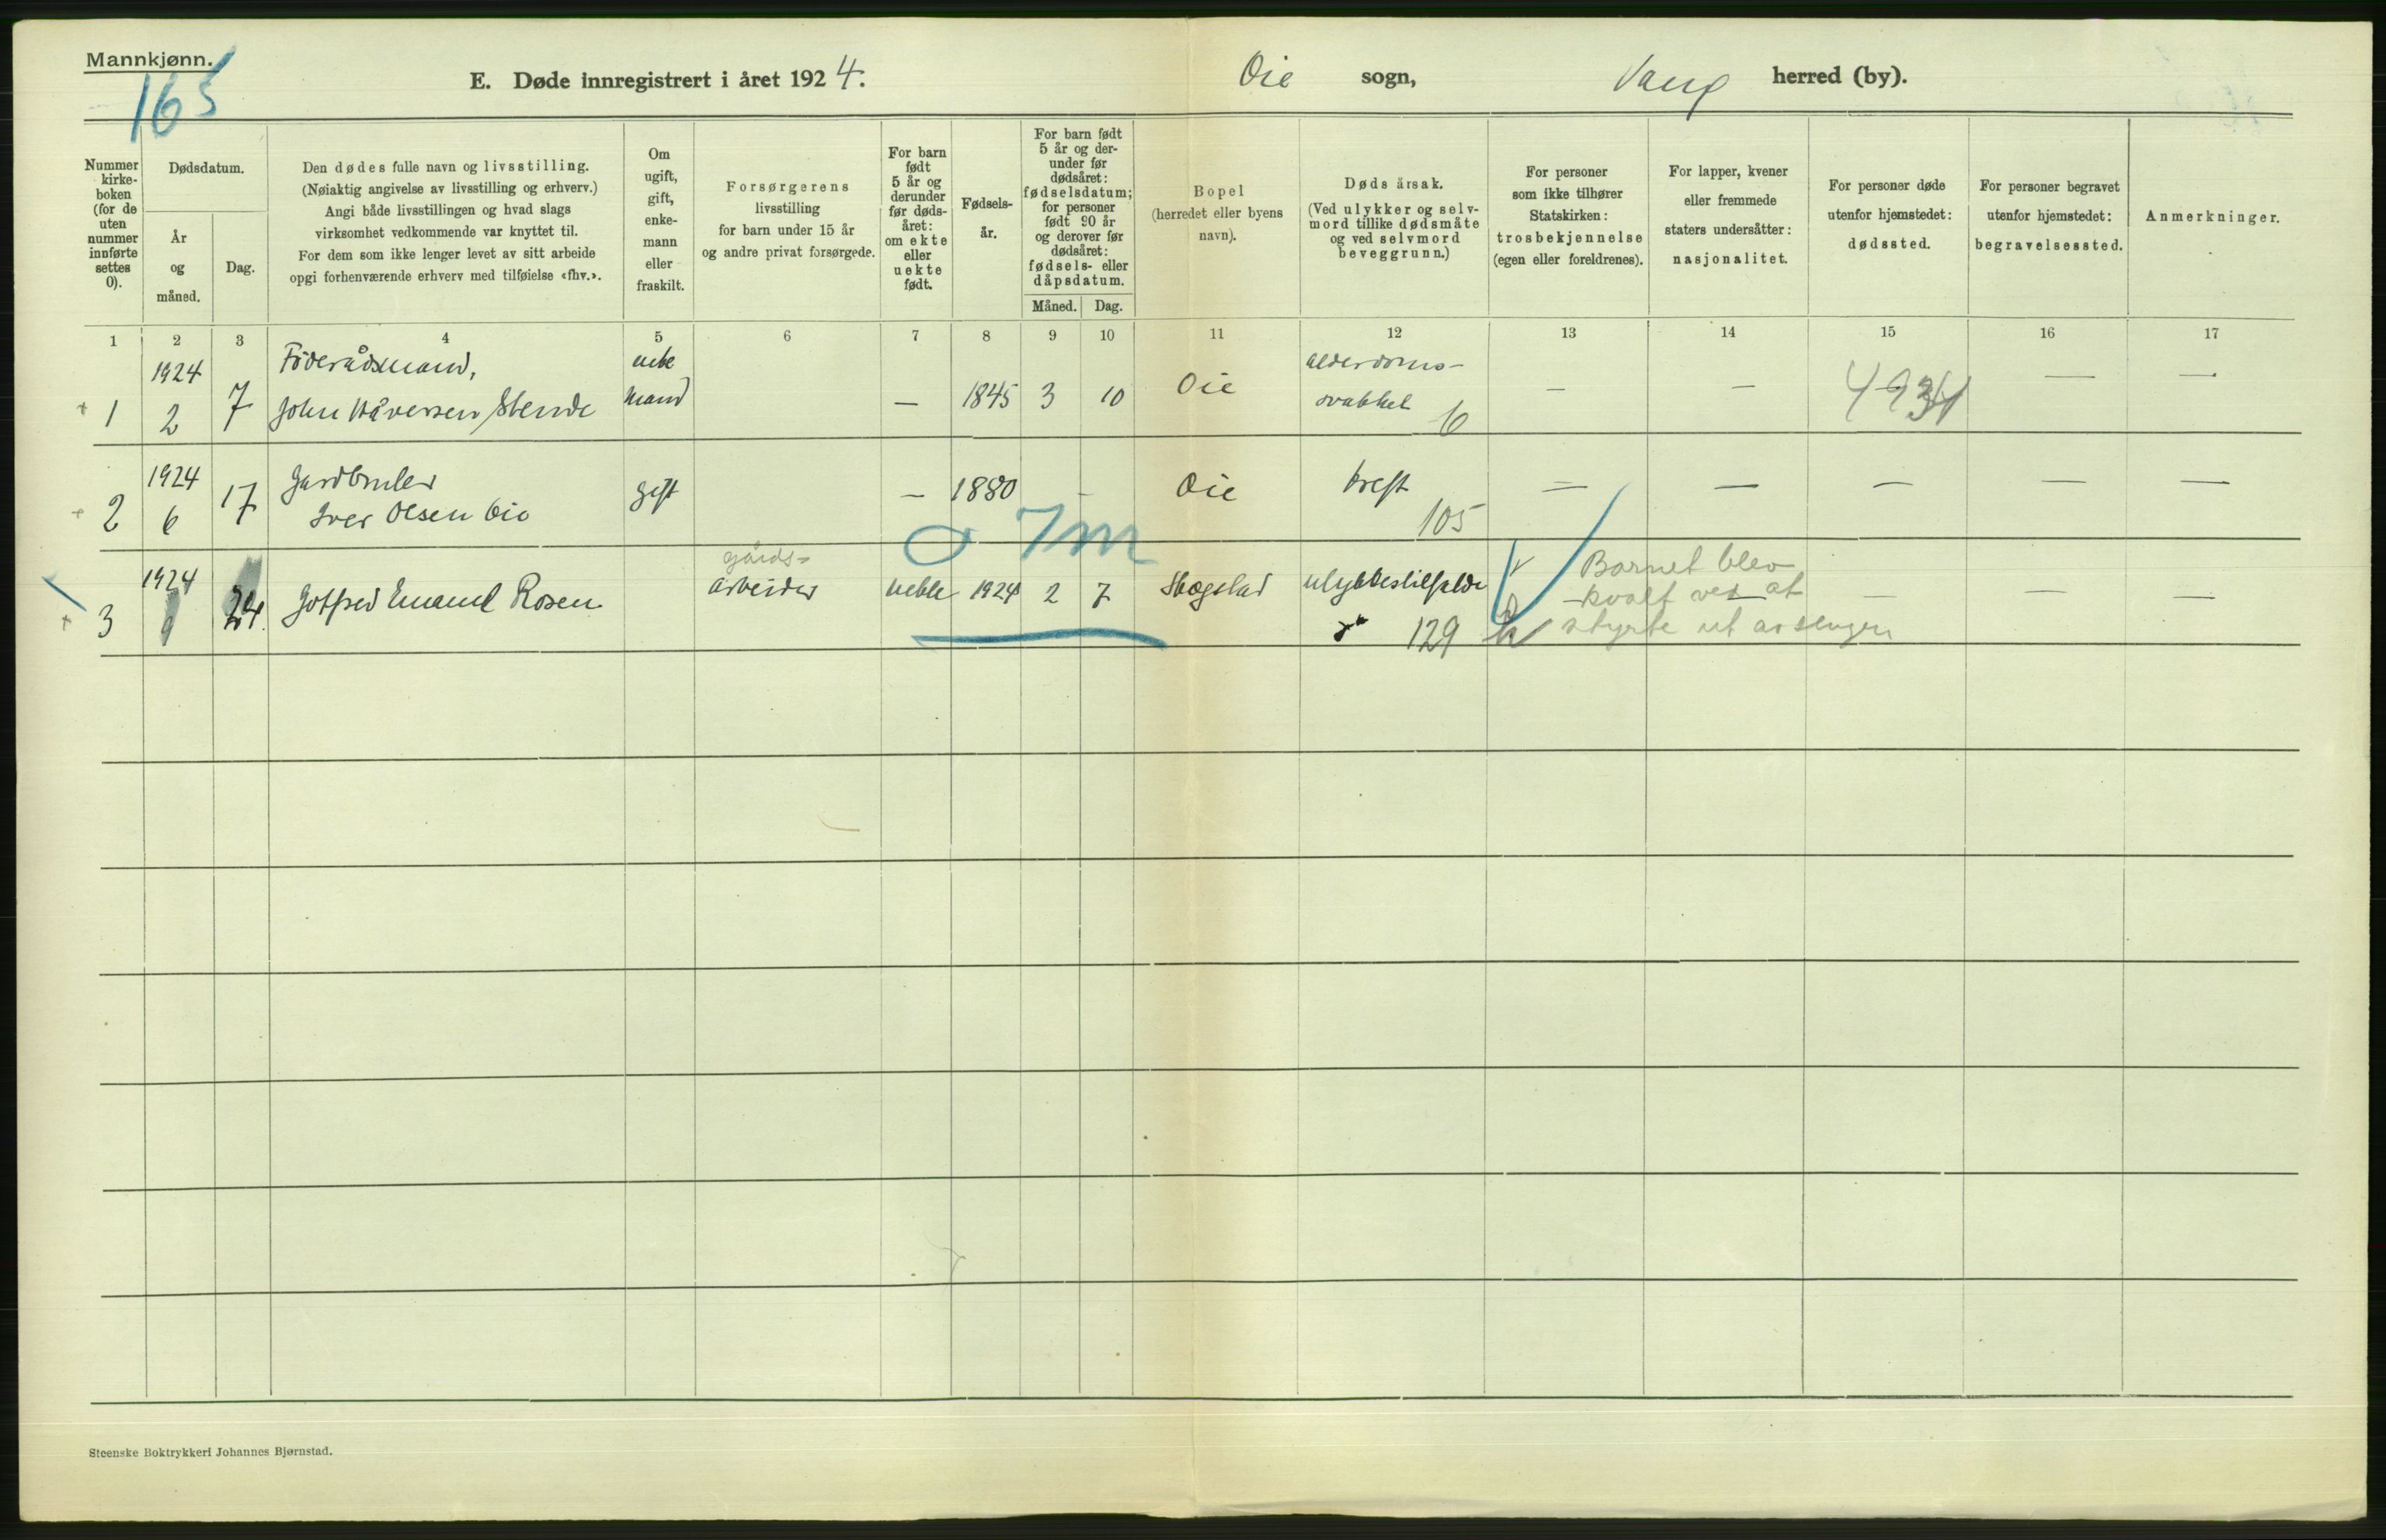 Mannkjønn.
165
E. Døde innregistrert i året 1924.
Øie sogn, Vang herred (by).
Nummer kirke-boken (for de uten nummer innførte settes 0).
Dødsdatum.
År og måned.
Dag.
Den dødes fulle navn og livsstilling.
(Nøiaktig angivelse av livsstilling og erhverv.)
Angi både livsstillingen og hvad slags
virksomhet vedkommende var knyttet til.
For dem som ikke lenger levet av sitt arbeide
opgi forhenværende erhverv med tilføielse «fhv.».
Om ugift, gift, enke-mann eller fraskilt.
Forsørgerens
livsstilling
for barn under 15 år
og andre privat forsørgede.
For barn født 5 år og derunder før døds-året: om ekte eller uekte født.
Fødsels-år.
For barn født 5 år og der-under før dødsåret: fødselsdatum; for personer født 90 år og derover før dødsåret: fødsels- eller dåpsdatum.
Måned. Dag.
Bopel
(herredet eller byens
navn).
Døds årsak.
(Ved ulykker og selv-
mord tillike dødsmåte
og ved selvmord
beveggrunn.)
For personer
som ikke tilhører
Statskirken:
trosbekjennelse
(egen eller foreldrenes).
For lapper, kvener
eller fremmede
staters undersåtter:
nasjonalitet.
For personer døde
utenfor hjemstedet:
dødssted.
For personer begravet
utenfor hjemstedet:
begravelsessted.
Anmerkninger.
1 2 3 4 5 6 7 8 9 10 11 12 13 14 15 16 17
1924 Föderådsmand, enke alderdoms-
+ 1 2 7 John Håversen Stende mand — 1845 3 10 Øie svakhet 6 — — — —
1924 Gardbruker
+ 2 6 17 Iver Olsen Øie gift — 1880 — Øie kreft 105 — — — — —
7m
gårds-
1924 arbeider Barnet blev
+ 3 24. Gotfred Emanuel Rosen uekte 1924 2 7 Skogstad ulykkestilfelde — kvalt ved at — — —
129 styrte ut av sengen
Steenske Boktrykkeri Johannes Bjørnstad.